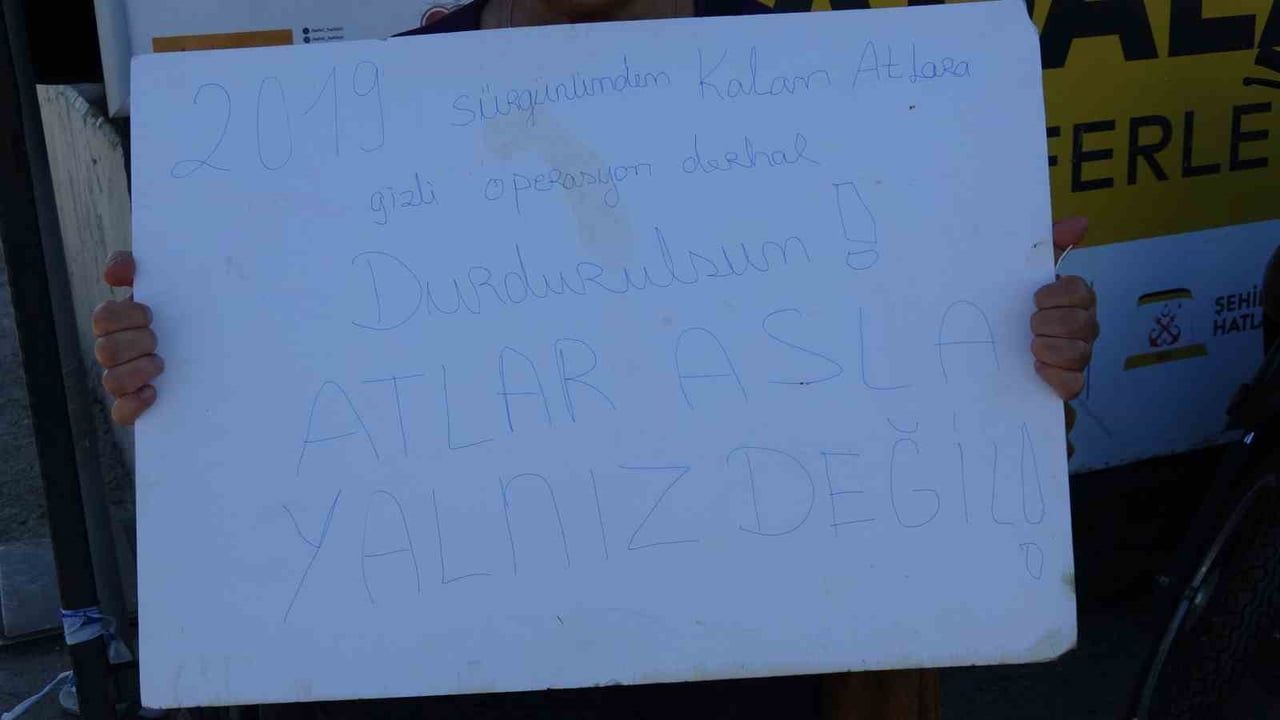 2019 sürgününden Kalan Atlara
gizli operasyon derhal
Durdurulsun !
ATLAR ASLA
YALNIZ DEĞİL!
FERLE
ŞEHİ
HATLA